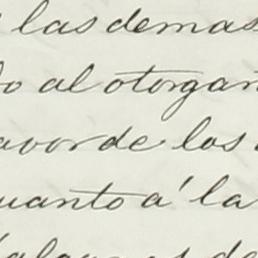 las demas
al otorgan
avor de los
uanto á la